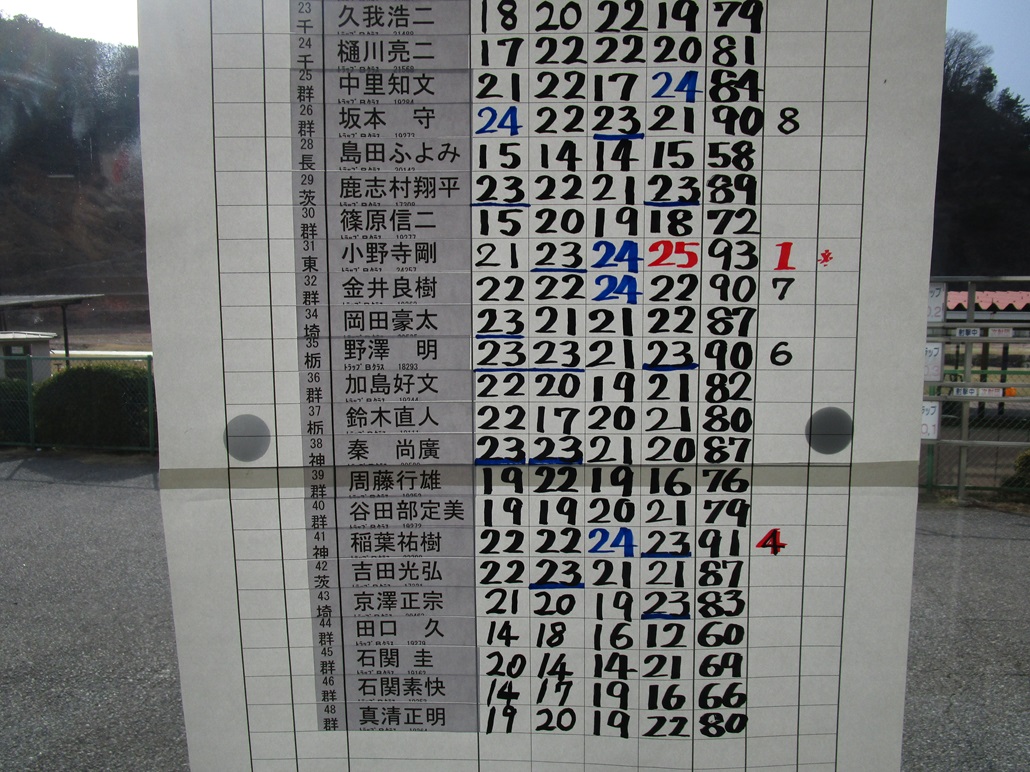 23 千 久我浩二 18 20 22 19 79
24 千 樋川亮二 17 22 22 20 81
25 群 中里知文 21 22 17 24 84
26 群 坂本 守 24 22 23 21 90 8
28 長 島田ふよみ 15 14 14 15 58
29 茨 鹿志村翔平 23 22 21 23 89
30 群 篠原信二 15 20 19 18 72
31 東 小野寺剛 21 23 24 25 93 1
32 群 金井良樹 22 22 24 22 90 7
34 埼 岡田豪太 23 21 21 22 87
35 栃 野澤 明 23 23 21 23 90 6
トラップ Bクラス 18293
36 群 加島好文 22 20 19 21 82
37 栃 鈴木直人 22 17 20 21 80
38 神 秦 尚廣 23 23 21 20 87
39 群 周藤行雄 19 22 19 16 76
40 群 谷田部定美 19 19 20 21 79
41 神 稲葉祐樹 22 22 24 23 91 4
42 茨 吉田光弘 22 23 21 21 87
43 埼 京澤正宗 21 20 19 23 83
44 群 田口 久 14 18 16 12 60
45 群 石関 圭 20 14 14 21 69
46 群 石関素快 14 17 19 16 66
48 群 真清正明 19 20 19 22 80